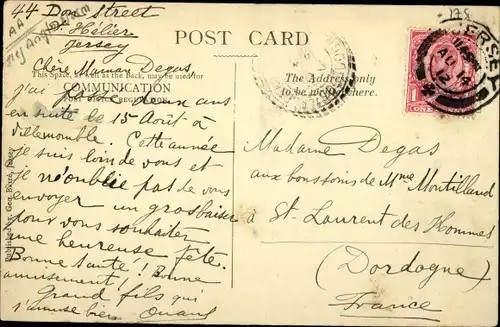 44 Don Street
St Hélier
Jersey
POST CARD
Chère Maman Degas
This Space, as well as the Back, may be used for
COMMUNICATION
The Address only
to be written here.
j'ai deux ans
en suite le 15 Août à
Villemomble. Cette année
je suis loin de vous et
je n'oublie pas de vous
envoyer un gros baiser
pour vous souhaiter
une heureuse fête.
Bonne santé! Bonne
amusement!
Grand fils qui
s'amuse bien
JERSEY
AU 14
12
ONE
Madame Degas
aux bons soins de Mme Montilland
à St. Laurent des Hommes
(Dordogne)
France